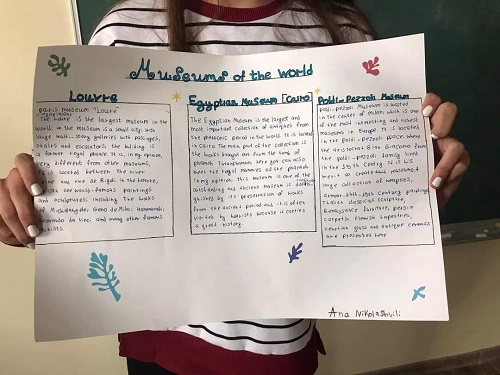 Museums of the world
Louvre
paris museum "Louvre"
The Louvre is the largest museum in the
world. in the museum is a small city with
large multi-story galleries with passages,
stairs and escalators. the building is
a former royal palace. It is, in my opinion,
very different from other museums,
It is located between the river
Seine and Rue de Rivoli. in the Louvre,
you can see world-famous paintings
and sculptures including the works
of Michelangelo, Venus de Milos, Hammurabi,
Leonardo da Vinci and many other famous
artists.
Egyptian Museum [Cairo]
The Egyptian Museum is the largest and
most important collection of antiques from
the pharaonic period in the world. It is located
in Cairo. The main part of the collection is
the works brought from the tombs of
pharaohs. Tutankhamun. here you can also
meet the royal mummies of the pharaohs.
In my opinion, this museum is one of the
outstanding and ancient museum is distin-
guished by its presentation of works
from the ancient period and it is often
visited by tourists because it carries
a great history.
Poldi-Pezzoli Museum
poldi-pezzoli Museum is located
in the center of Milan, which is one
of the most interesting and richest
museums in Europe. It is located
in the poldi-pezzoli palace where
the aristocrat Gian Giacomo from
the poldi-pezzoli family lived
in the 19th century. It is his
merit to create this renowned
large collection of weapons,
armor, 14th-19th century paintings
Italian classical sculpture,
Renaissance furniture, persian
carpets, Flemish tapestries,
Venetian glass and antique ceramics
are presented here
Ana Nikolashvili